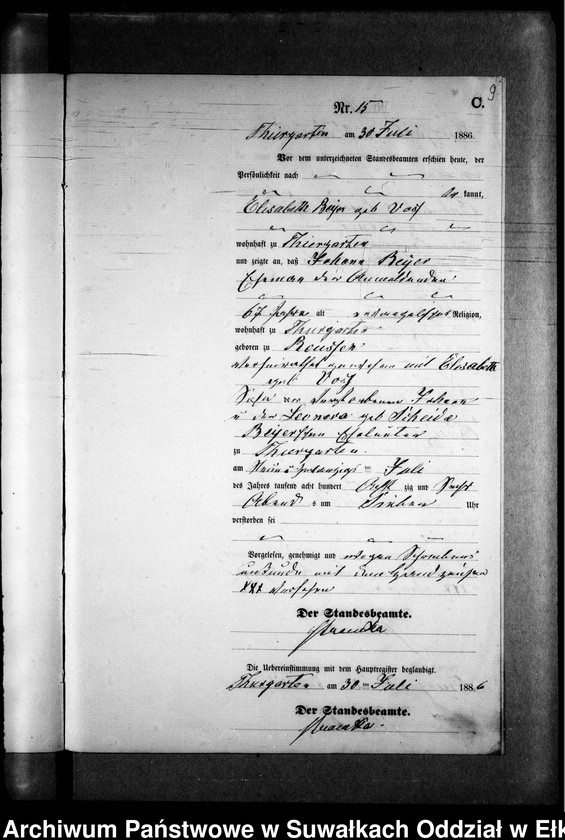 9
C.
Nr. 15
Thiergarten am 30 Juli 1886.
Vor dem unterzeichneten Standesbeamten erschien heute, der
Persönlichkeit nach
kannt,
Elisabeth Beyer geb Voss
wohnhaft zu Thiergarten
und zeigte an, daß Johann Beyer
Eheman der Anmeldenden
67 Jahre alt evangelischer Religion,
wohnhaft zu Thiergarten
geboren zu Reussen
verheirathet gewesen mit Elisabeth
geb Voss
Sohn des verstorbenen Johann
u der Leonora geb Scheida
Beyerschen Eheleuten
zu Thiergarten
am Neun u zwanzigs ten Juli
des Jahres tausend acht hundert Acht zig und Sechs
Abend s um Sieben Uhr
verstorben sei
Vorgelesen, genehmigt und wegen Schreibens
unkunde mit dem Handzeichen
XXX versehen
Der Standesbeamte.
Die Uebereinstimmung mit dem Hauptregister beglaubigt.
Thiergarten am 30 ten Juli 1886
Der Standesbeamte.
Archiwum Państwowe w Suwałkach Oddział w Ełk